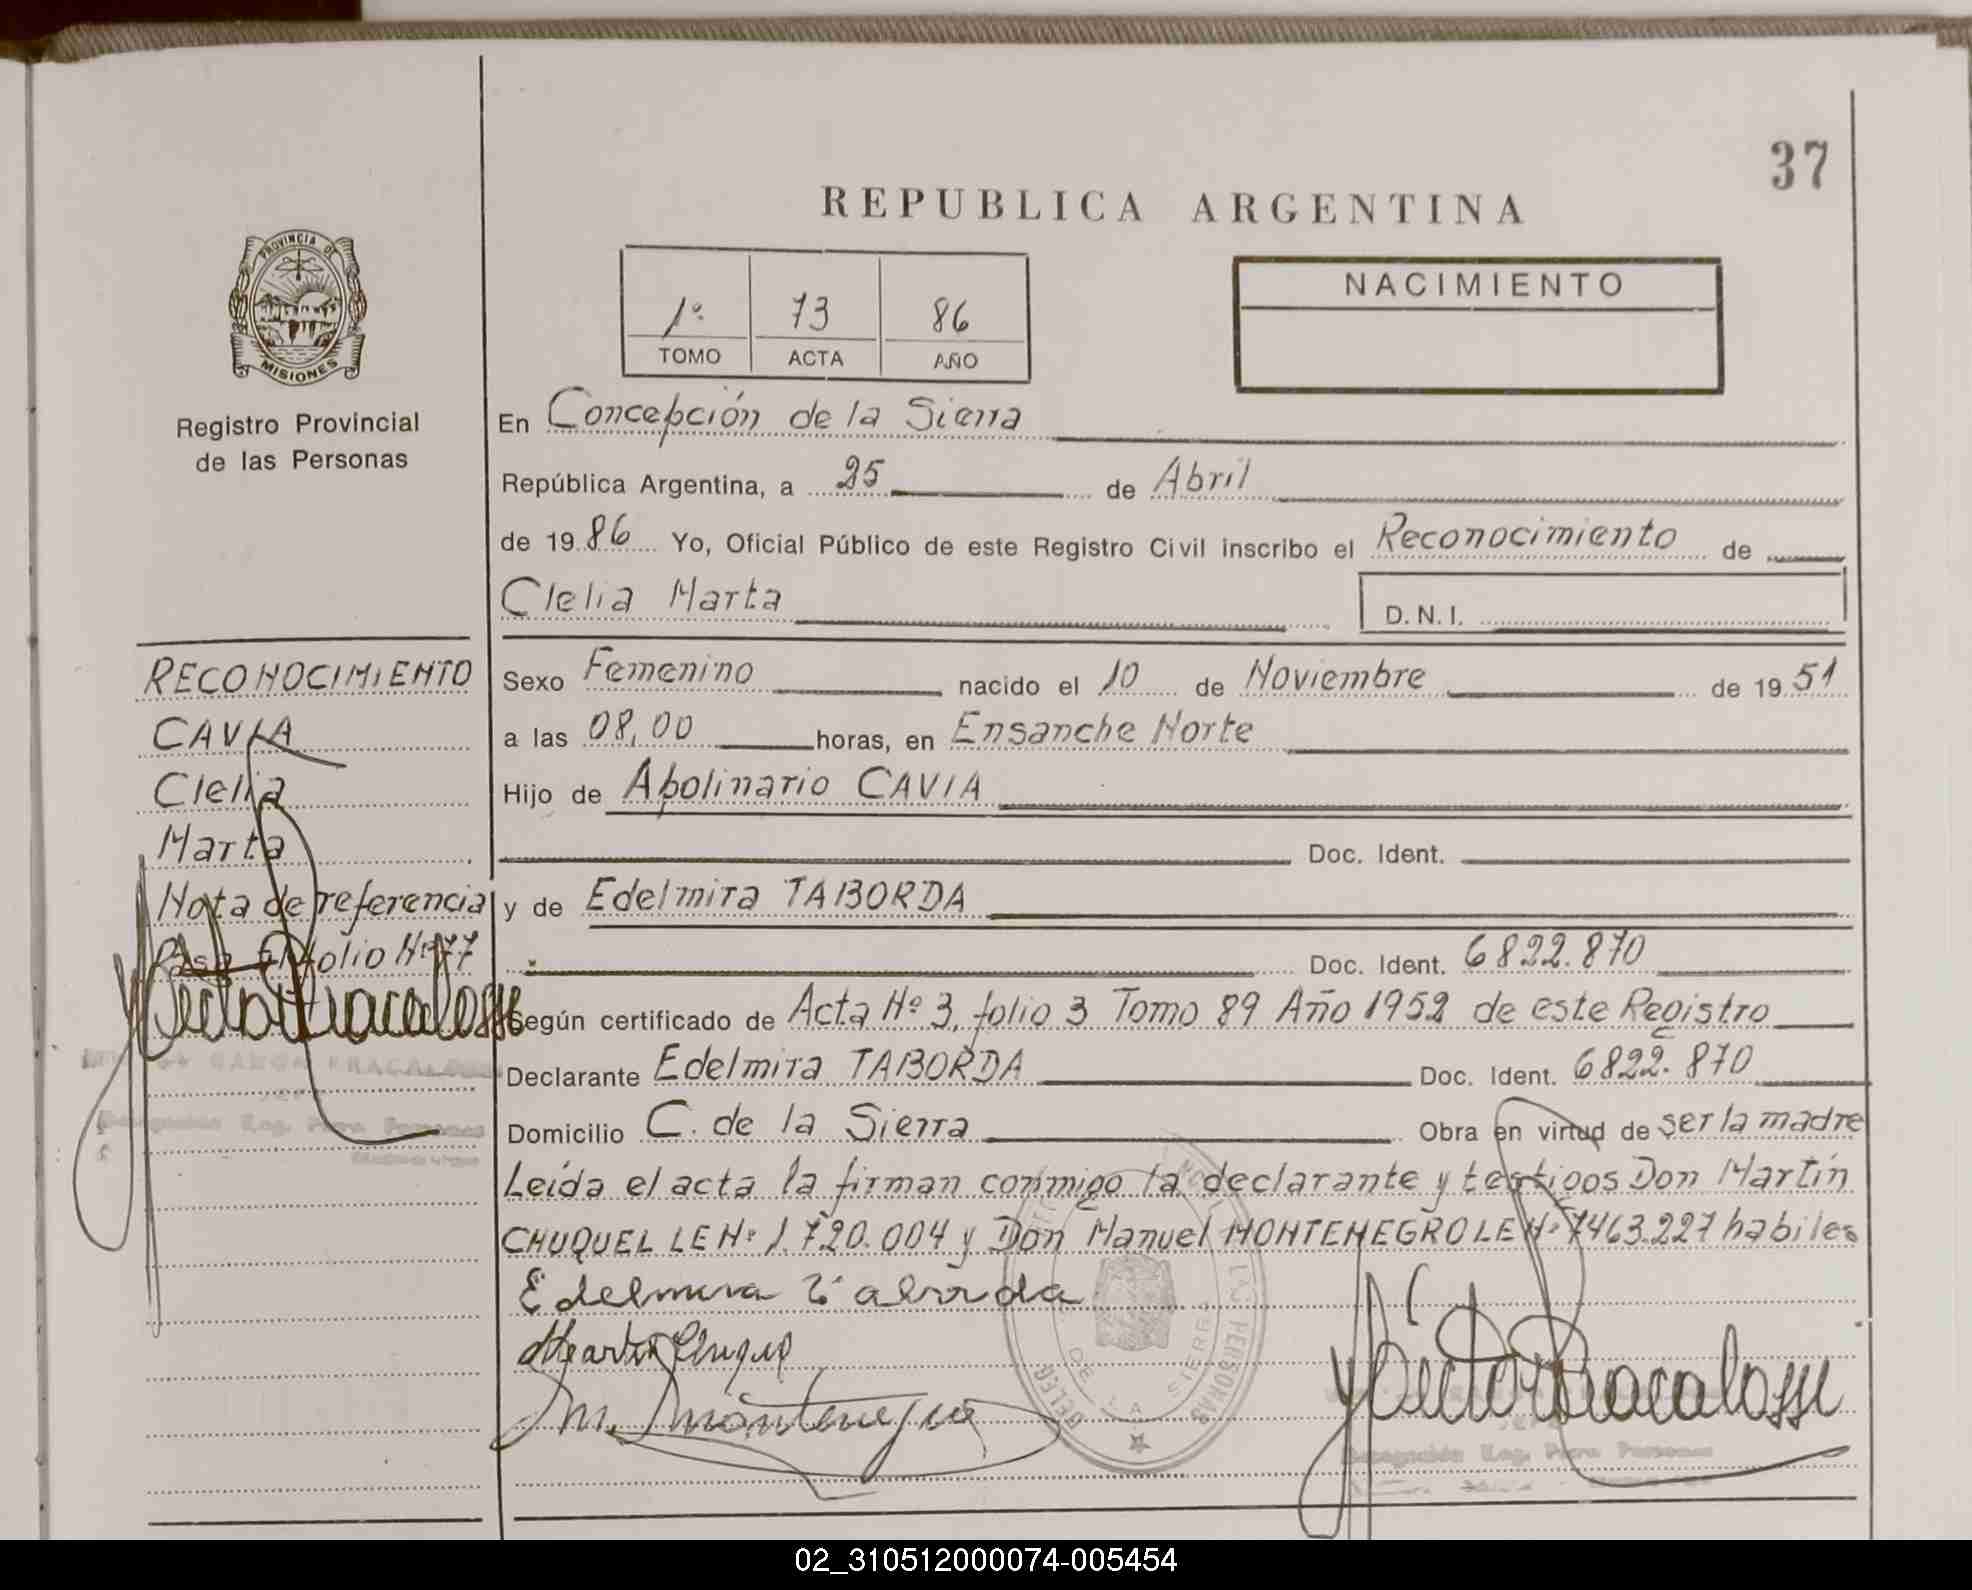 37
REPUBLICA ARGENTINA
PROVINCIA DE
MISIONES
Registro Provincial
de las Personas
1º 73 86
TOMO ACTA AÑO
NACIMIENTO
En Concepción de la Sierra
República Argentina, a 25 de Abril
de 1986 Yo, Oficial Público de este Registro Civil inscribo el Reconocimiento de
Clelia Marta
D.N.I.
Sexo Femenino nacido el 10 de Noviembre de 1951
a las 08,00 horas, en Ensanche Norte
Hijo de Apolinario CAVIA
Doc. Ident.
y de Edelmira TABORDA
Doc. Ident. 6822.870
Según certificado de Acta Nº 3, folio 3 Tomo 89 Año 1952 de este Registro
Declarante Edelmira TABORDA Doc. Ident. 6822.870
Domicilio C. de la Sierra Obra en virtud de ser la madre
Leída el acta la firman conmigo la declarante y testigos Don Martín
CHUQUEL LE Nº 1.720.004 y Don Manuel MONTENEGRO LE Nº 7463.227 habiles
Edelmira Taborda
Martin Chuquel
M. Montenegro
RECONOCIMIENTO
CAVIA
Clelia
Marta
Nota de referencia
Pasa El folio Nº 77
DE LA SIERRA
02_310512000074-005454